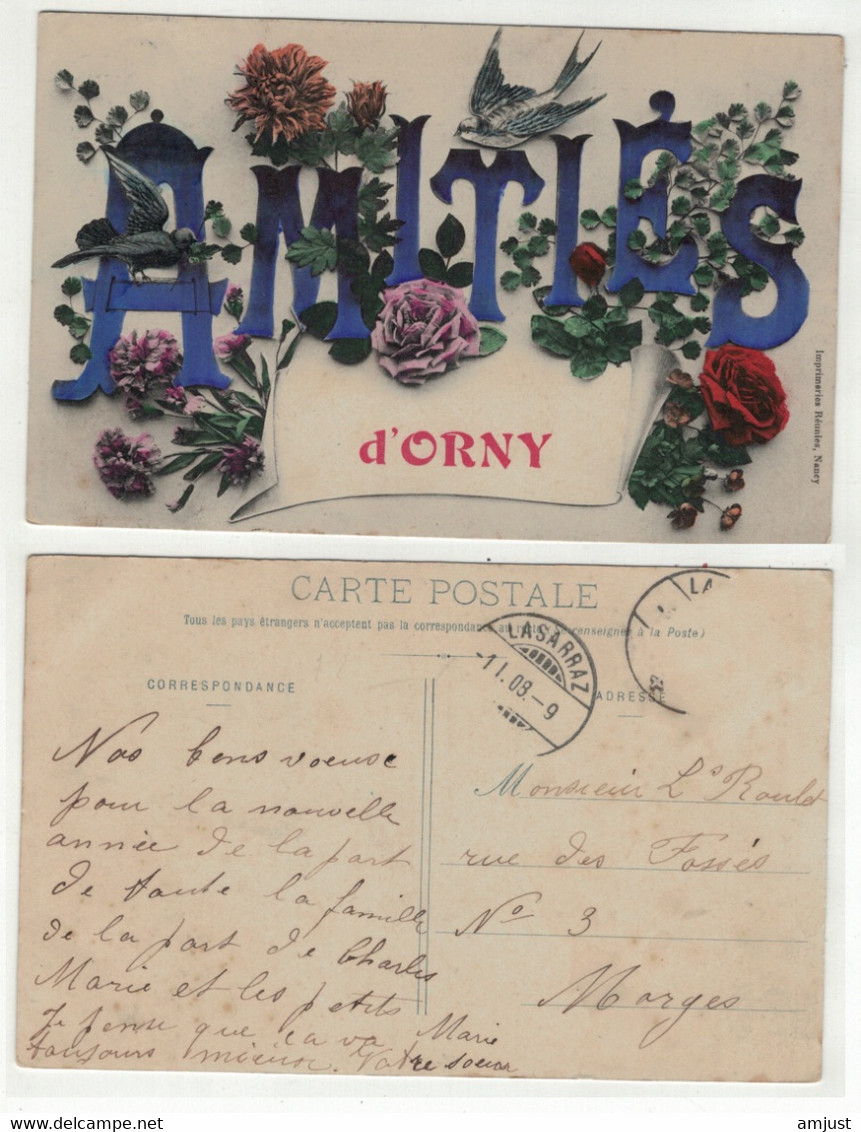 AMITIÉS
d'ORNY
Imprimeries Réunies, Nancy
CARTE POSTALE
Tous les pays étrangers n'acceptent pas la correspondance au recto (Se renseigner à la Poste)
LASARRAZ
-1 I. 08.-9
LA
CORRESPONDANCE
ADRESSE
Nos bons voeuse
pour la nouvelle
année de la part
de toute la famille
de la part de Charles
Marie et les petits
Je pense que ca va Marie
toujours mieux. Votre soeur
Monsieur Ls Roulet
rue des Fossés
No 3
Morges
amjust